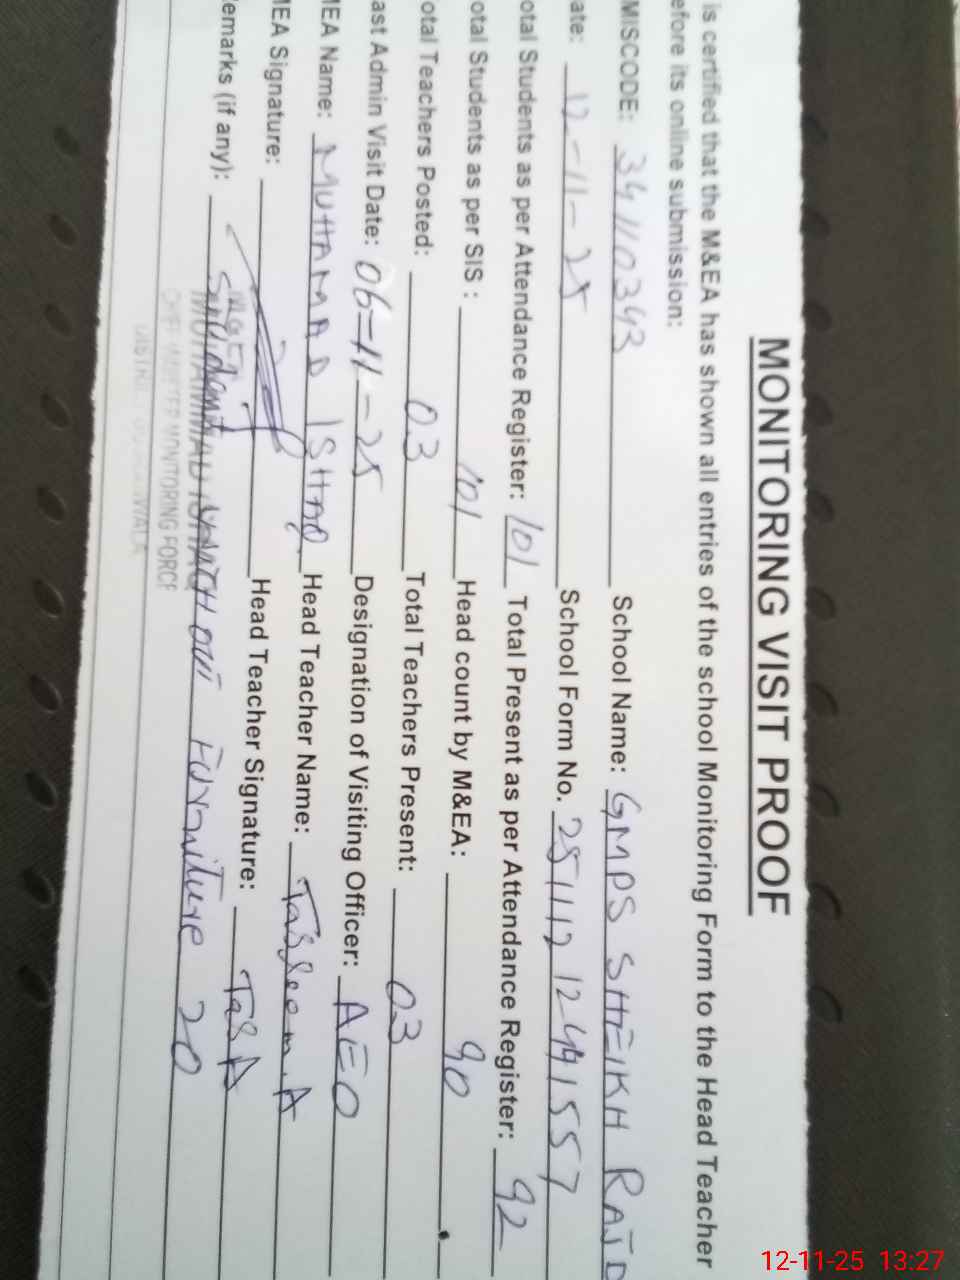 MONITORING VISIT PROOF
is certified that the M&EA has shown all entries of the school Monitoring Form to the Head Teacher
efore its online submission:
MISCODE: 34110343 School Name: GMPS SHEIKH RAJD
ate: 12-11-25 School Form No. 251112 12441557
otal Students as per Attendance Register: 101 Total Present as per Attendance Register: 92
otal Students as per SIS : 101 Head count by M&EA: 90
otal Teachers Posted: 03 Total Teachers Present: 03
ast Admin Visit Date: 06-11-25 Designation of Visiting Officer: AEO
MEA Name: MUHAMAD ISHAQ Head Teacher Name: Tasleem.A
MEA Signature: Head Teacher Signature: Tas A
emarks (if any): Student without Furniture 20
MUHAMMAD ISHAQ
CHIEF MINISTER MONITORING FORCE
12-11-25 13:27